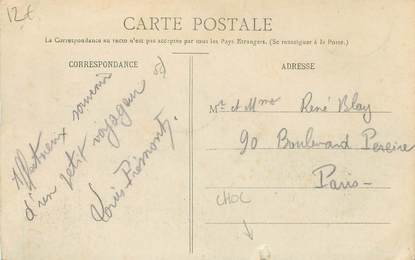 12€
CARTE POSTALE
La Correspondance au recto n'est pas acceptée par tous les Pays Étrangers. (Se renseigner à la Poste.)
CORRESPONDANCE
Affectueux souvenir
d'un petit voyageur
Louis
ADRESSE
Mr et Mme René Blay
90 Boulevard Pereire
Paris
CHOC